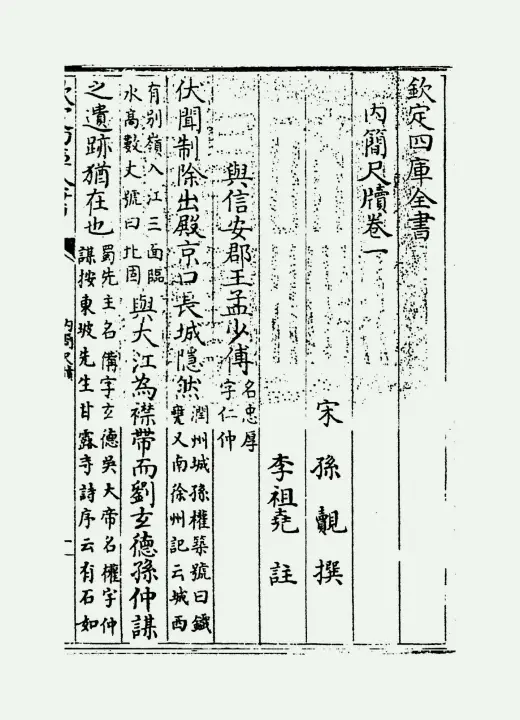 欽定四庫全書
內簡尺牘卷一
宋 孫覿 撰
李祖堯 註
與信安郡王孟少傅
名忠厚
字仁仲
伏聞制除出殿京口長城隱然
潤州城孫權築號曰鐵
甕又南徐州記云城西
有别嶺入江三面臨
水高數丈號曰北固
與大江為襟帶而劉玄德孫仲謀
之遺跡猶在也
蜀先主名備字玄德吳大帝名權字仲
謀按東坡先生甘露寺詩序云有石如